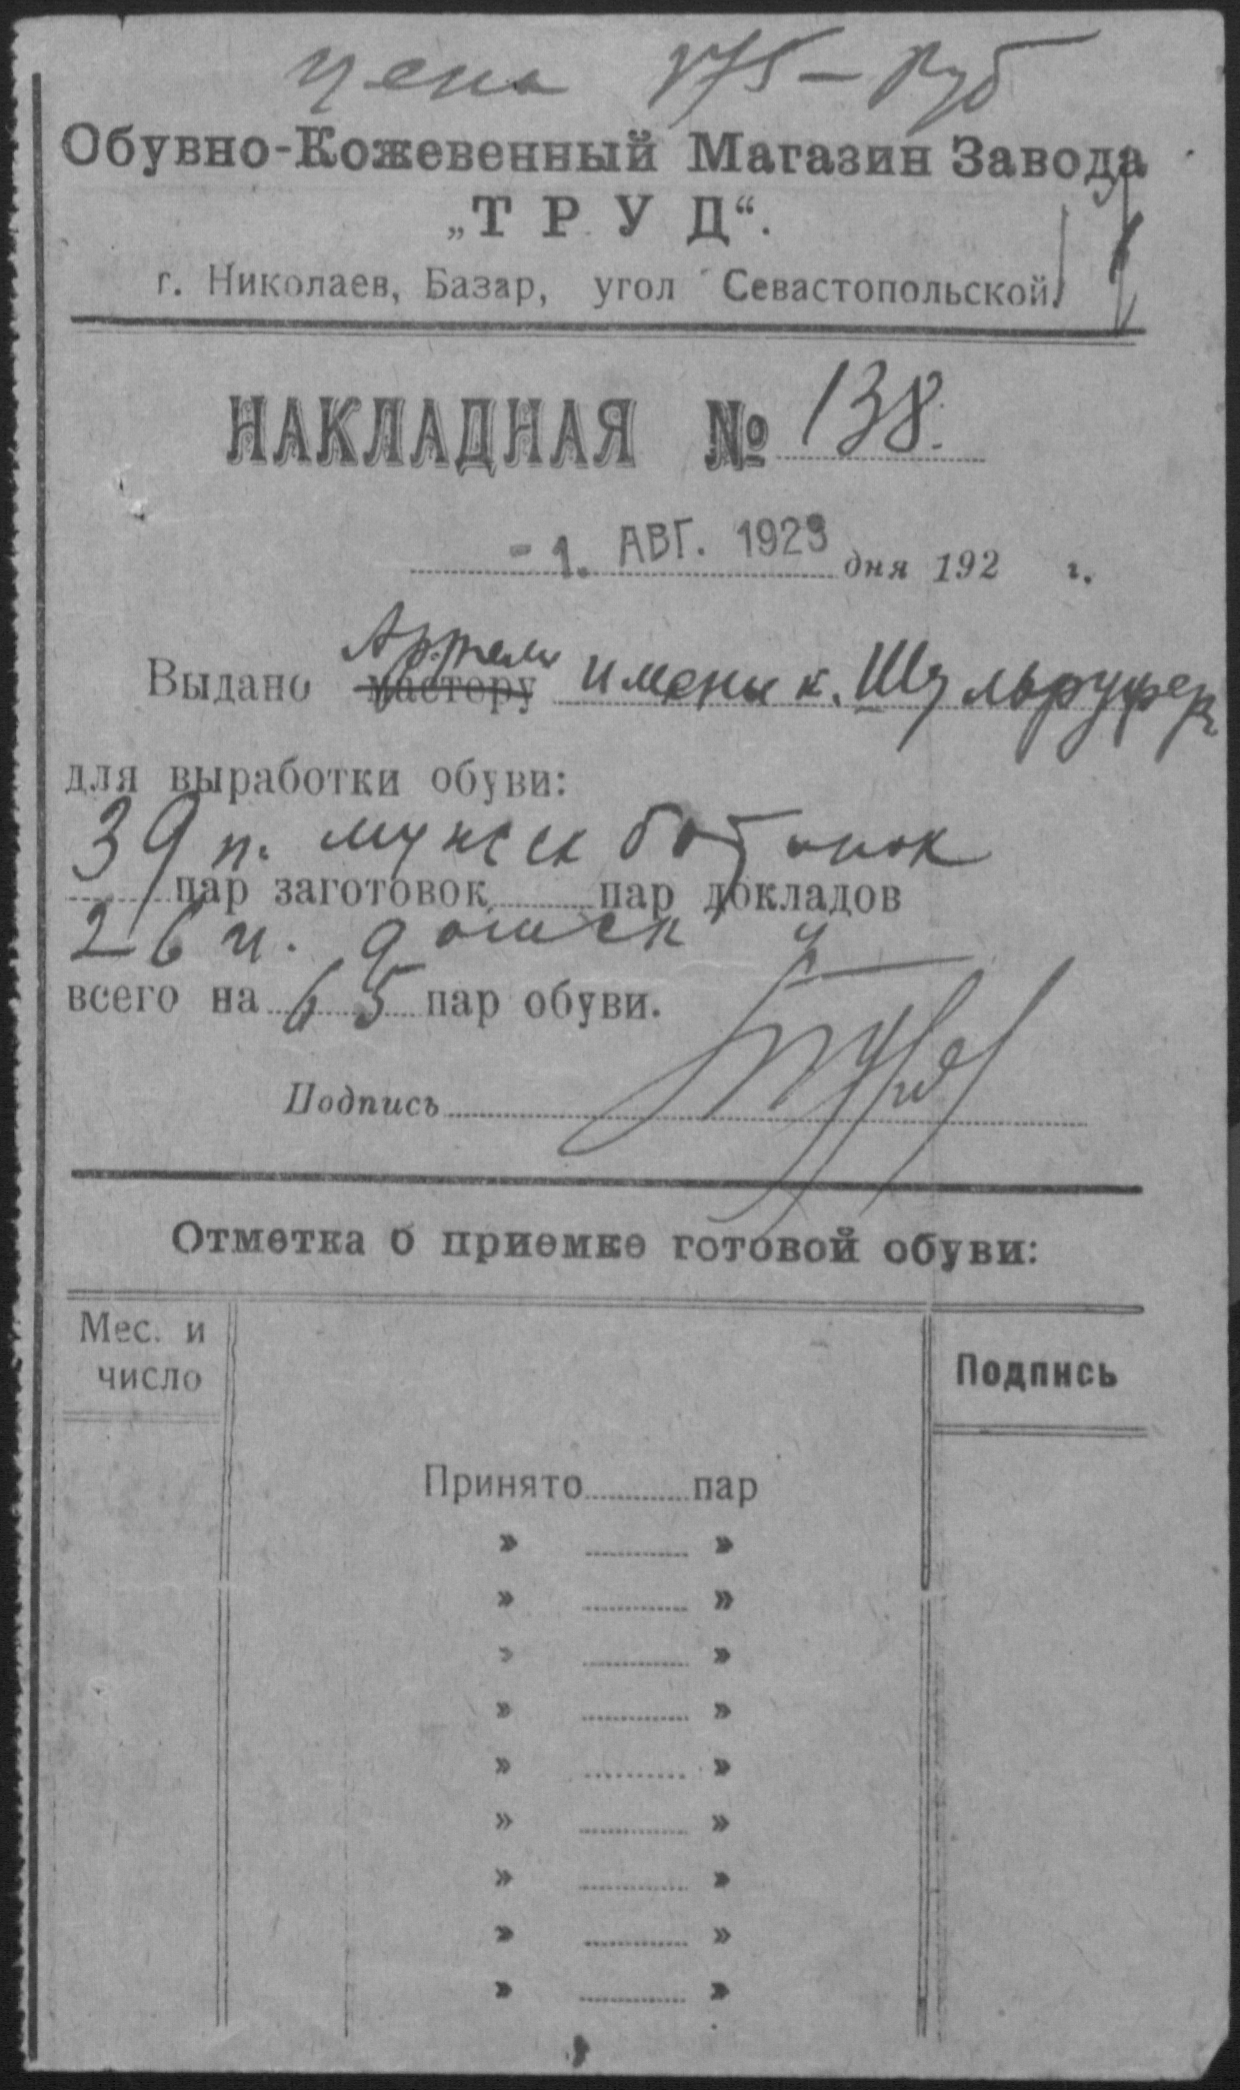 цена 175 – руб
Обувно-Кожевенный Магазин Завода
„ТРУД“.
г. Николаев, Базар, угол Севастопольской
НАКЛАДНАЯ № 138.
- 1. АВГ. 1923 дня 192 г.
Артели
Выдано мастору имени к. Шульруфер
для выработки обуви:
39 п. мужск ботинок
пар заготовок пар докладов
26 п.
всего на 65 пар обуви.
Подпись
Отметка о приемке готовой обуви:
Мес. и
число
Подпись
Принято пар
» »
» »
» »
» »
» »
» »
» »
» »
» »